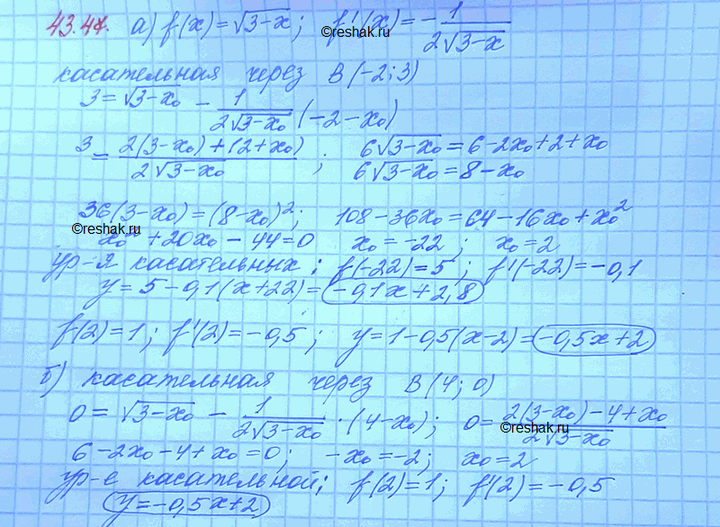 43.47. а) f(x) = √(3-x); f'(x) = - 1/(2√(3-x))
©reshak.ru
касательная через B(-2; 3)
3 = √(3-x₀) - 1/(2√(3-x₀)) (-2-x₀)
3 = (2(3-x₀)+(2+x₀))/(2√(3-x₀)); 6√(3-x₀) = 6-2x₀+2+x₀
6√(3-x₀) = 8-x₀
36(3-x₀) = (8-x₀)²; 108-36x₀ = 64-16x₀+x₀²
©reshak.ru
x₀²+20x₀-44=0 x₀=-22; x₀=2
ур-я касательных: f(-22)=5; f'(-22)=-0,1
y=5-0,1(x+22)=-0,1x+2,8
f(2)=1; f'(2)=-0,5; y=1-0,5(x-2)=-0,5x+2
б) касательная через B(4; 0)
0=√(3-x₀) - 1/(2√(3-x₀))·(4-x₀); 0=(2(3-x₀)-4+x₀)/(2√(3-x₀))
©reshak.ru
6-2x₀-4+x₀=0; -x₀=-2; x₀=2
ур-е касательной: f(2)=1; f'(2)=-0,5
y=-0,5x+2